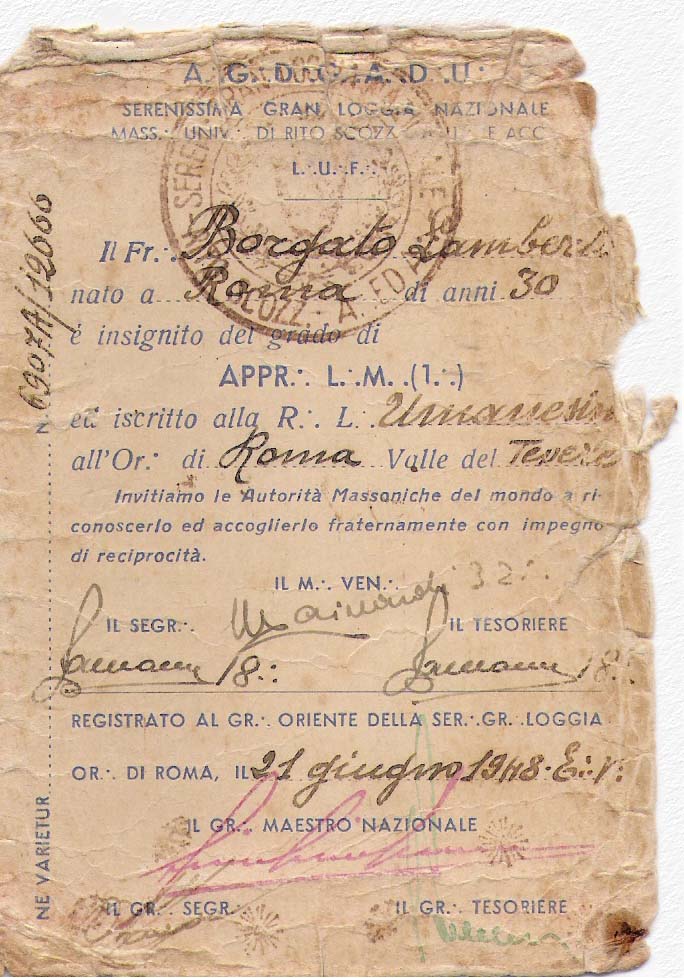 A∴ G∴ D∴ G∴ A∴ D∴ U∴
SERENISSIMA GRAN LOGGIA NAZIONALE
MASS∴ UNIV∴ DI RITO SCOZZ ACC
L∴ U∴ F∴
Il Fr∴ Borgato Lambert
nato a Roma di anni 30
é insignito del grado di
APPR∴ L∴ M∴ (1∴)
ed iscritto alla R∴ L∴ Umanesim
all'Or∴ di Roma Valle del Tevere
Invitiamo le Autorità Massoniche del mondo a ri-
conoscerlo ed accoglierlo fraternamente con impegno
di reciprocità.
IL M∴ VEN∴
Mainardi 32∴
IL SEGR∴ IL TESORIERE
18∴ 18∴
REGISTRATO AL GR∴ ORIENTE DELLA SER∴ GR∴ LOGGIA
OR∴ DI ROMA, IL 21 giugno 1948 E∴ V∴
IL GR∴ MAESTRO NAZIONALE
IL GR∴ SEGR∴ IL GR∴ TESORIERE
NE VARIETUR N. 6907A/12660